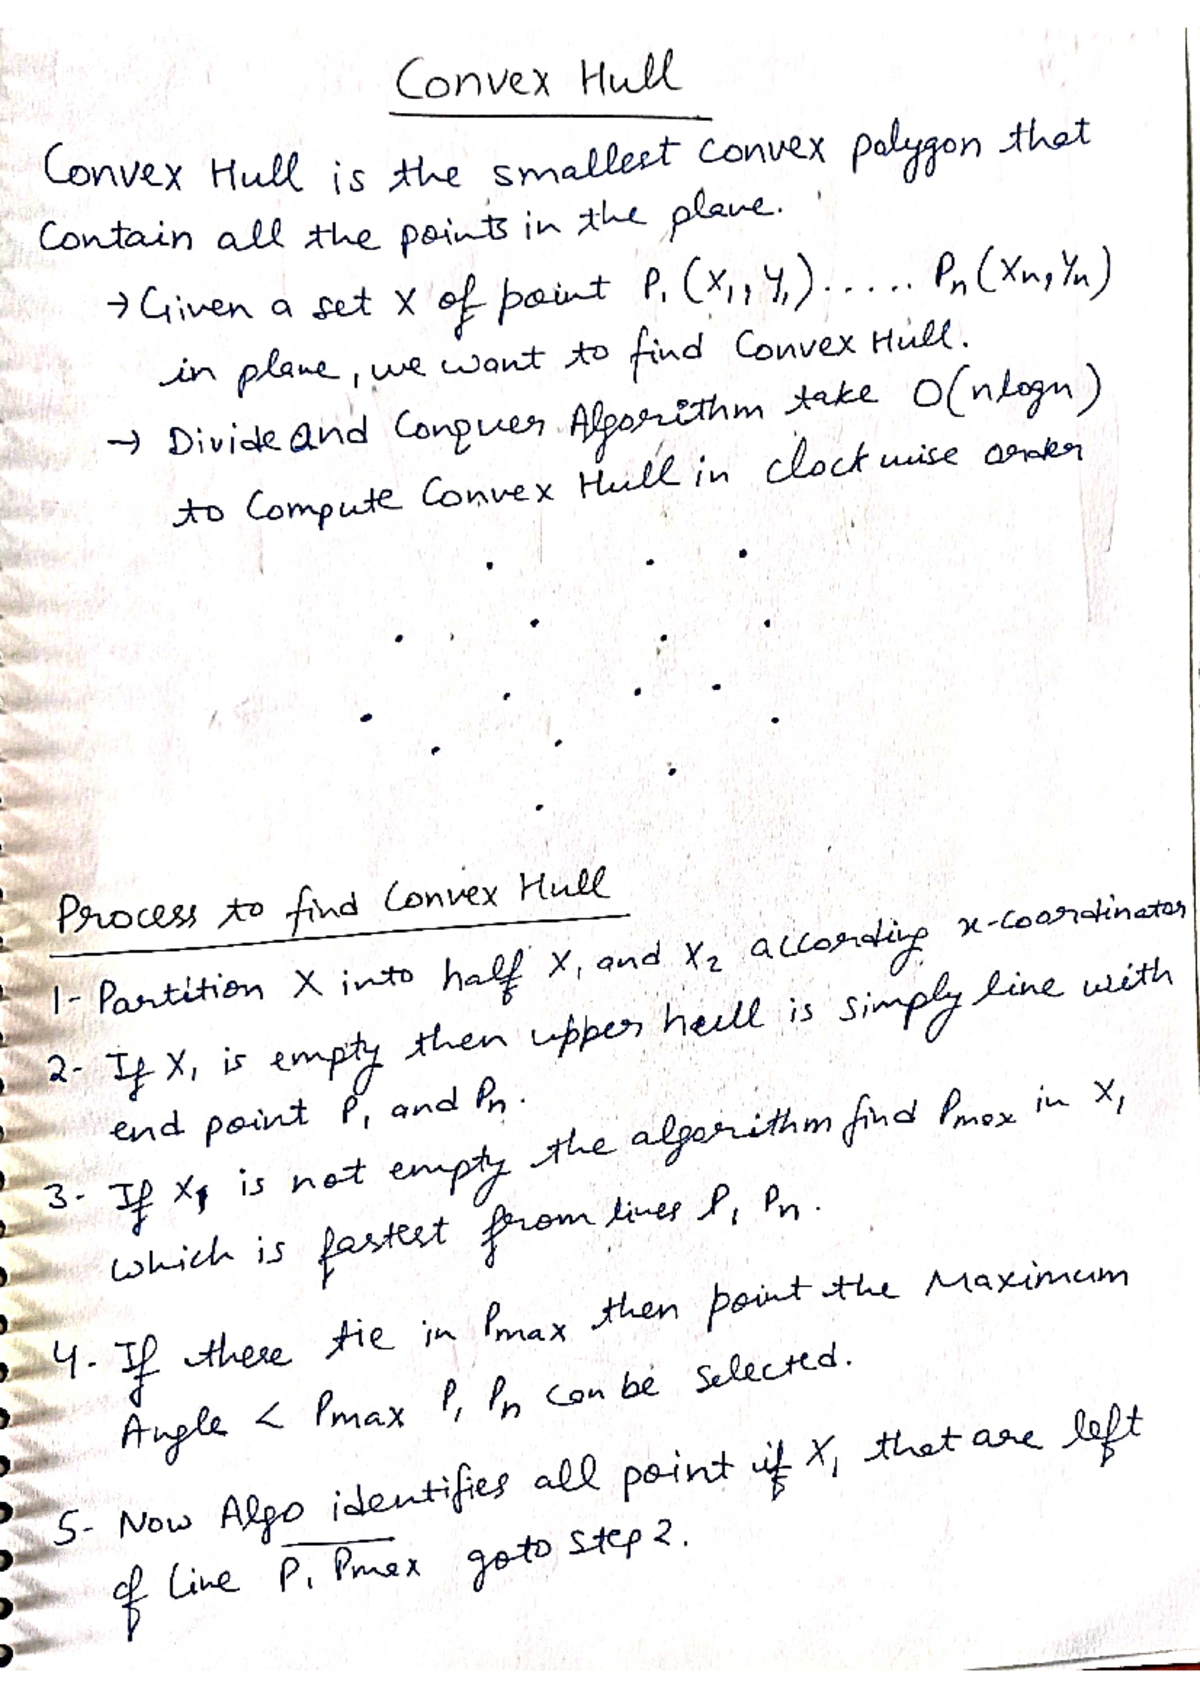 Convex Hull
Convex Hull is the smallest convex polygon that
Contain all the points in the plane.
→ Given a set X of point P₁ (X₁, Y₁) ..... Pₙ (Xₙ, Yₙ)
in plane, we want to find Convex Hull.
→ Divide and Conquer Algorithm take O(nlogn)
to Compute Convex Hull in clockwise order
Process to find Convex Hull
1- Partition X into half X₁ and X₂ according x-coordinator
2- If X₁ is empty then upper hull is simply line with
end point P₁ and Pₙ.
3- If X₁ is not empty the algorithm find Pmax in X₁
which is fastest from lines P₁ Pₙ.
4. If there tie in Pmax then point the Maximum
Angle < Pmax P₁ Pₙ can be selected.
5- Now Algo identifies all point if X₁ that are left
of Line P₁ Pmax goto step 2.